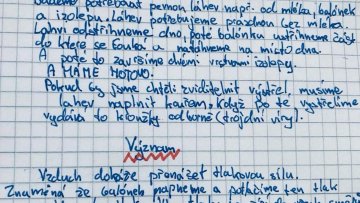 budeme potřebovat pevnou láhev např. od mléka, balónek
a izolepu. Láhev potřebujeme prázdnou bez mléka.
Lahvi odstřihneme dno, poté balónku ustřihneme část
do které se fouká a natáhneme na místo dna.
A poté to završíme dvěmi vrstvami izolepy.
A MÁME HOTOVO.
Pokud by jsme chtěli zviditelnit výstřel, musíme
lahev naplnit kouřem. Když po té vystřelíme
vydává to kroužky odborně (trojdní víry).
Význam
Vzduch dokáže přenášet tlakovou sílu.
Znamená že balónek napneme a potáhneme ten tlak